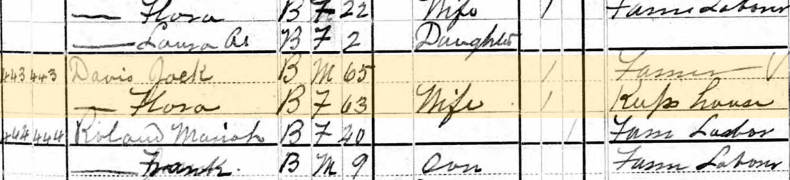 — Flora B F 22 Wife 1 Farm Labour
— Laura A. B F 2 Daughter
443 443 Davis Jack B M 65 1 Farmer
— Flora B F 63 Wife 1 Keeps house
444 444 Roland Mariah B F 40 1 Farm Labor
— Frank. B M 9 Son Farm Labour